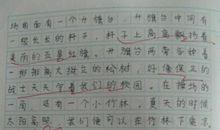 场里面有一个升旗台，升旗台中间有
一根长长的杆子，杆子上高高飘扬着
美丽的五星红旗。升旗台两旁各种着
一排排高大挺立的松树，好像保卫的
战士天天守着我们的校园。在操场的
一角，还有一个小竹林，夏天的时候
太阳 我们便可以在竹林下乘凉